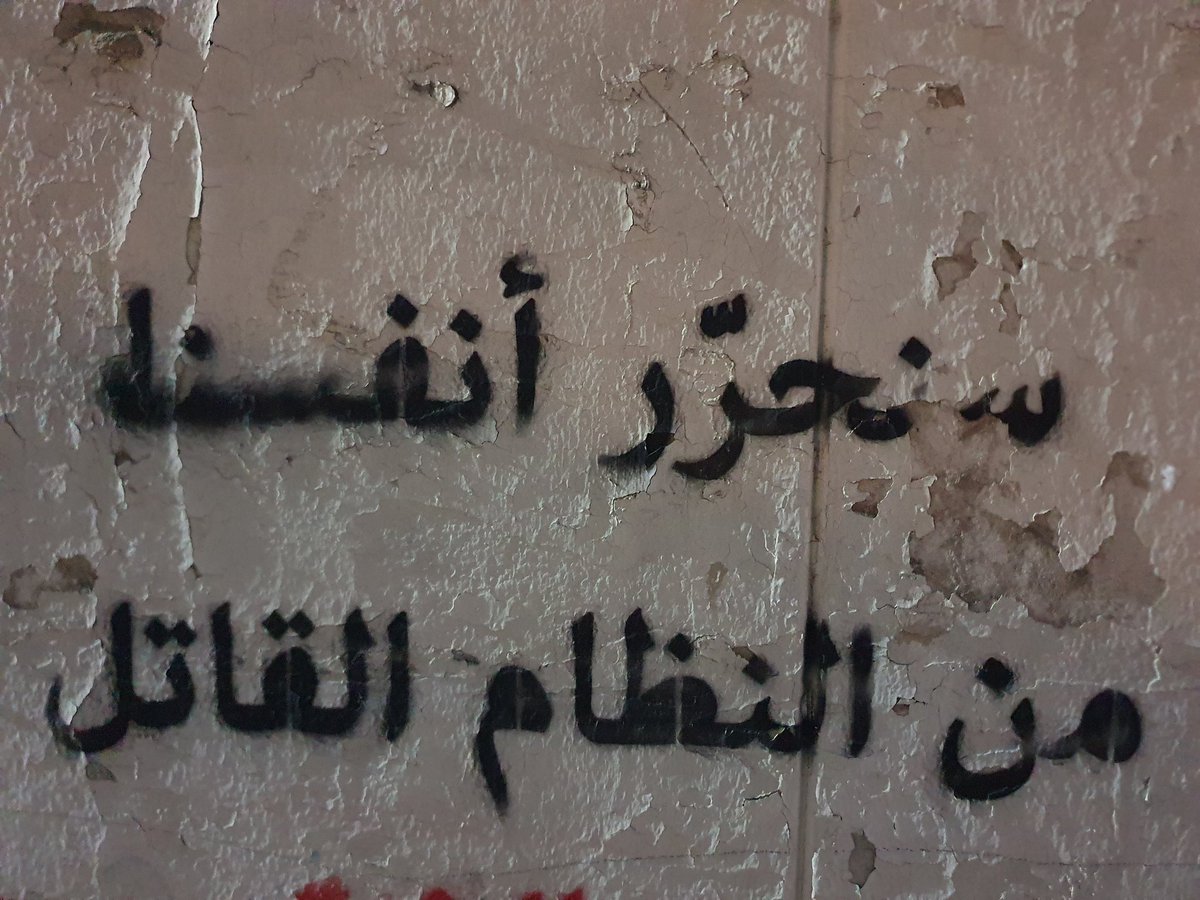 سنحرّر أنفسنا
من النظام القاتل